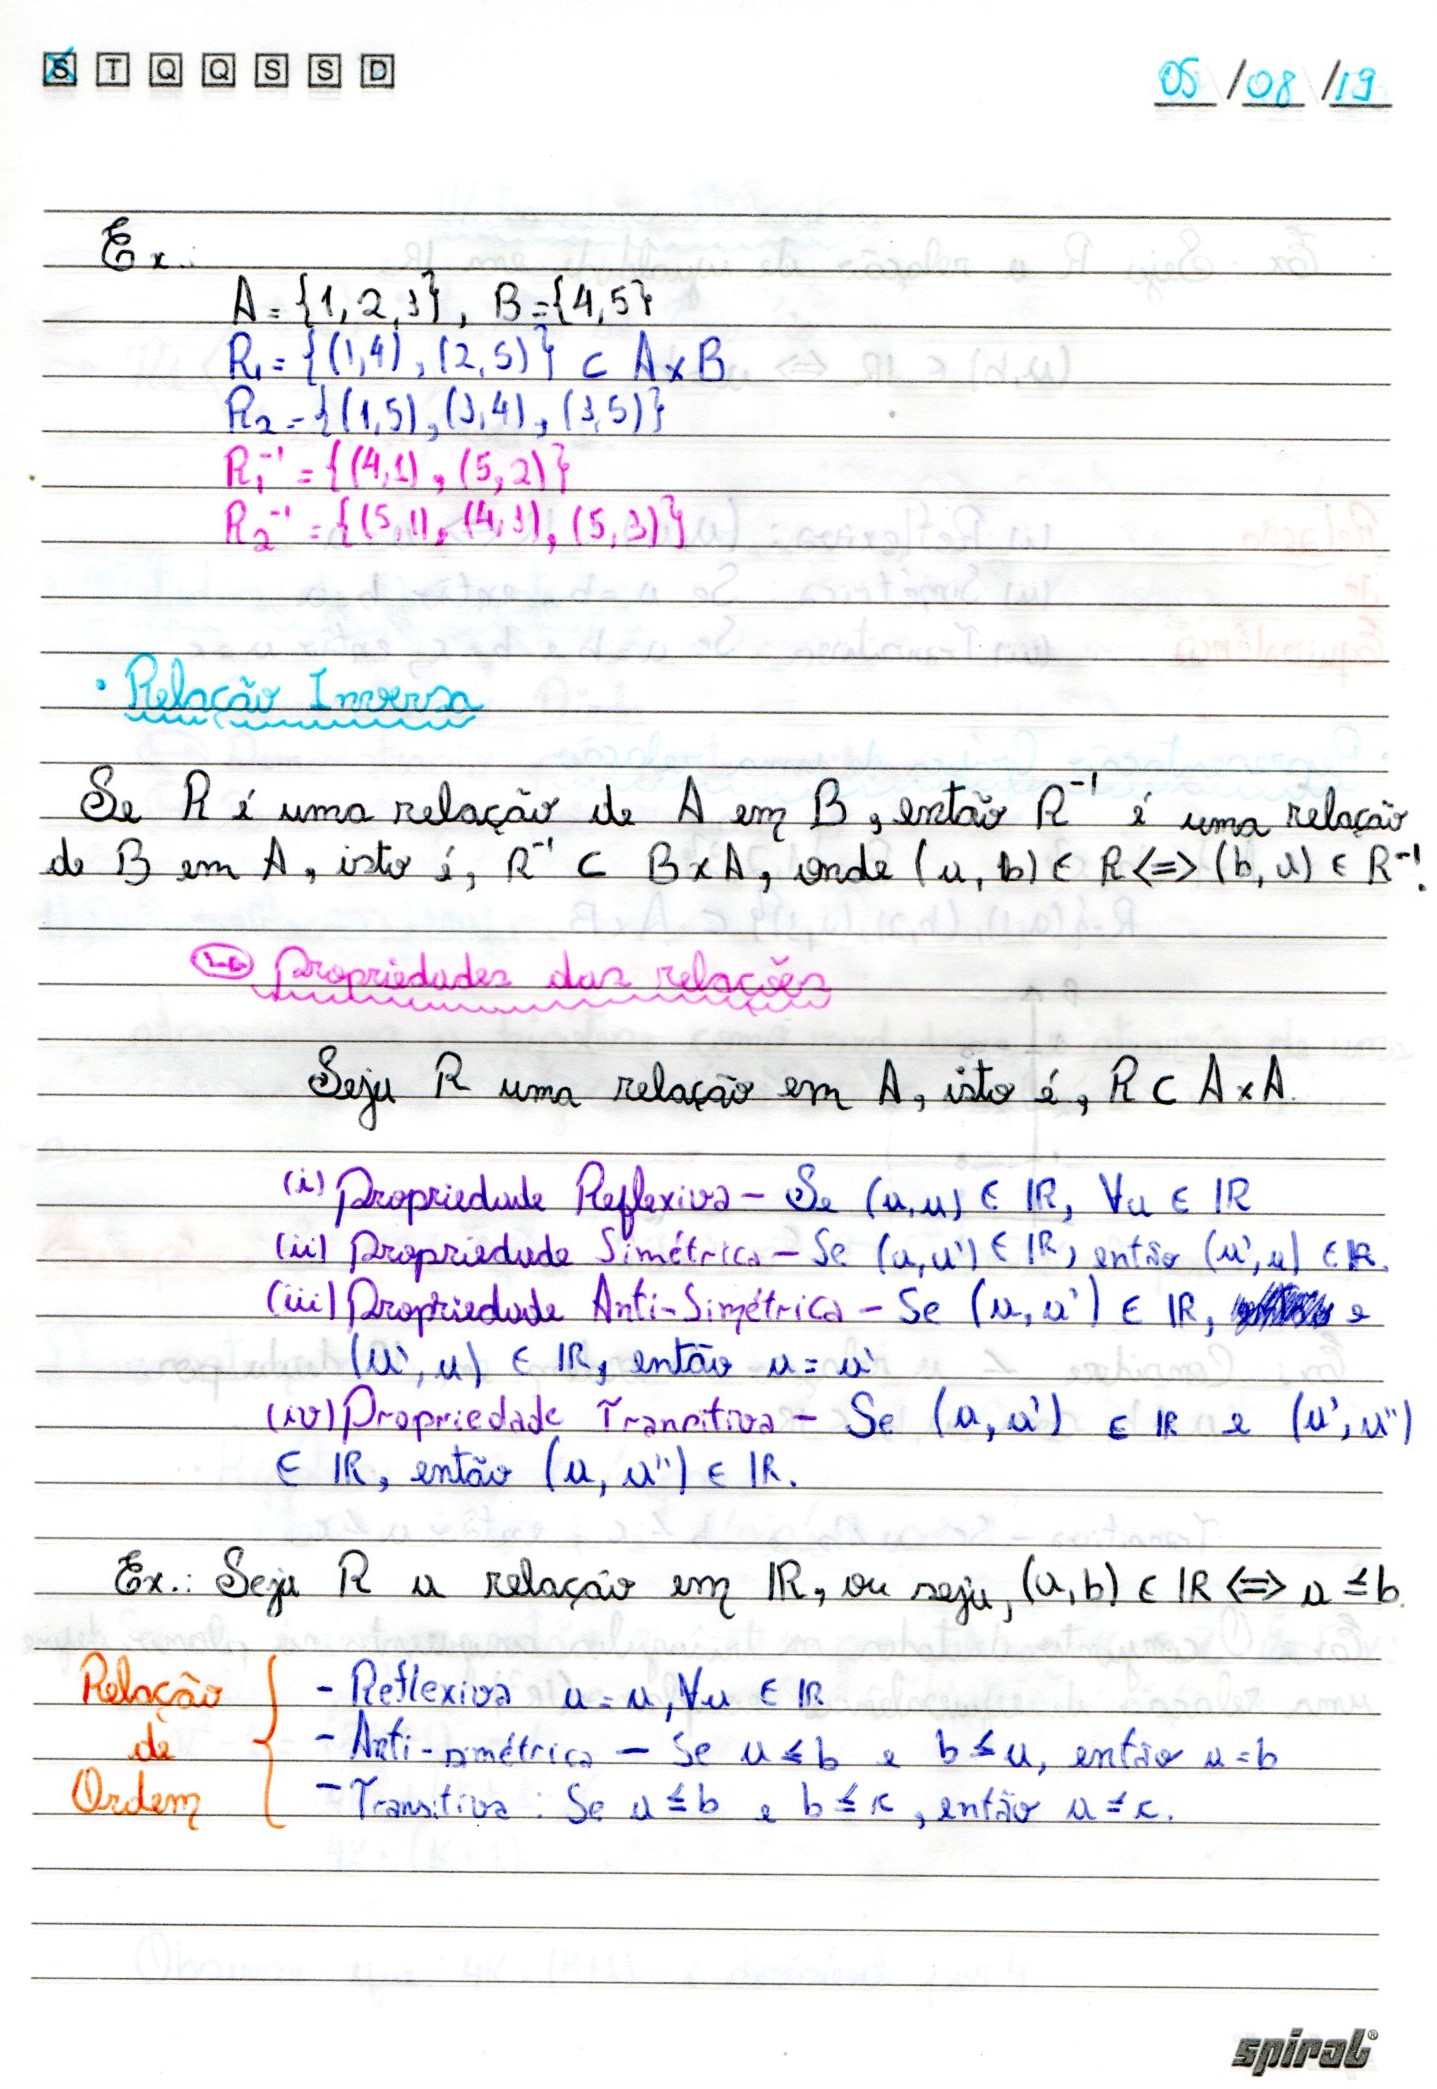 S T Q Q S S D 05/08/19
Ex.:
A = {1, 2, 3}, B = {4, 5}
R₁ = {(1,4), (2,5)} ⊂ A×B
R₂ = {(1,5), (3,4), (3,5)}
R₁⁻¹ = {(4,1), (5,2)}
R₂⁻¹ = {(5,1), (4,3), (5,3)}
• Relação Inversa
Se R é uma relação de A em B, então R⁻¹ é uma relação
de B em A, isto é, R⁻¹ ⊂ B×A, onde (a, b) ∈ R <=> (b, a) ∈ R⁻¹.
Propriedades das relações
Seja R uma relação em A, isto é, R ⊂ A×A.
(i) Propriedade Reflexiva – Se (a,a) ∈ ℝ, ∀a ∈ ℝ
(ii) Propriedade Simétrica – Se (a,a') ∈ ℝ, então (a',a) ∈ ℝ.
(iii) Propriedade Anti-Simétrica – Se (a, a') ∈ ℝ, e
(a', a) ∈ ℝ, então a = a'
(iv) Propriedade Transitiva – Se (a, a') ∈ ℝ e (a', a'')
∈ ℝ, então (a, a'') ∈ ℝ.
Ex.: Seja R a relação em ℝ, ou seja, (a,b) ∈ ℝ <=> a ≤ b.
Relação - Reflexiva a = a, ∀a ∈ ℝ
de - Anti-simétrica – Se a ≤ b e b ≤ a, então a = b
Ordem - Transitiva: Se a ≤ b e b ≤ c, então a ≤ c.
spiral®